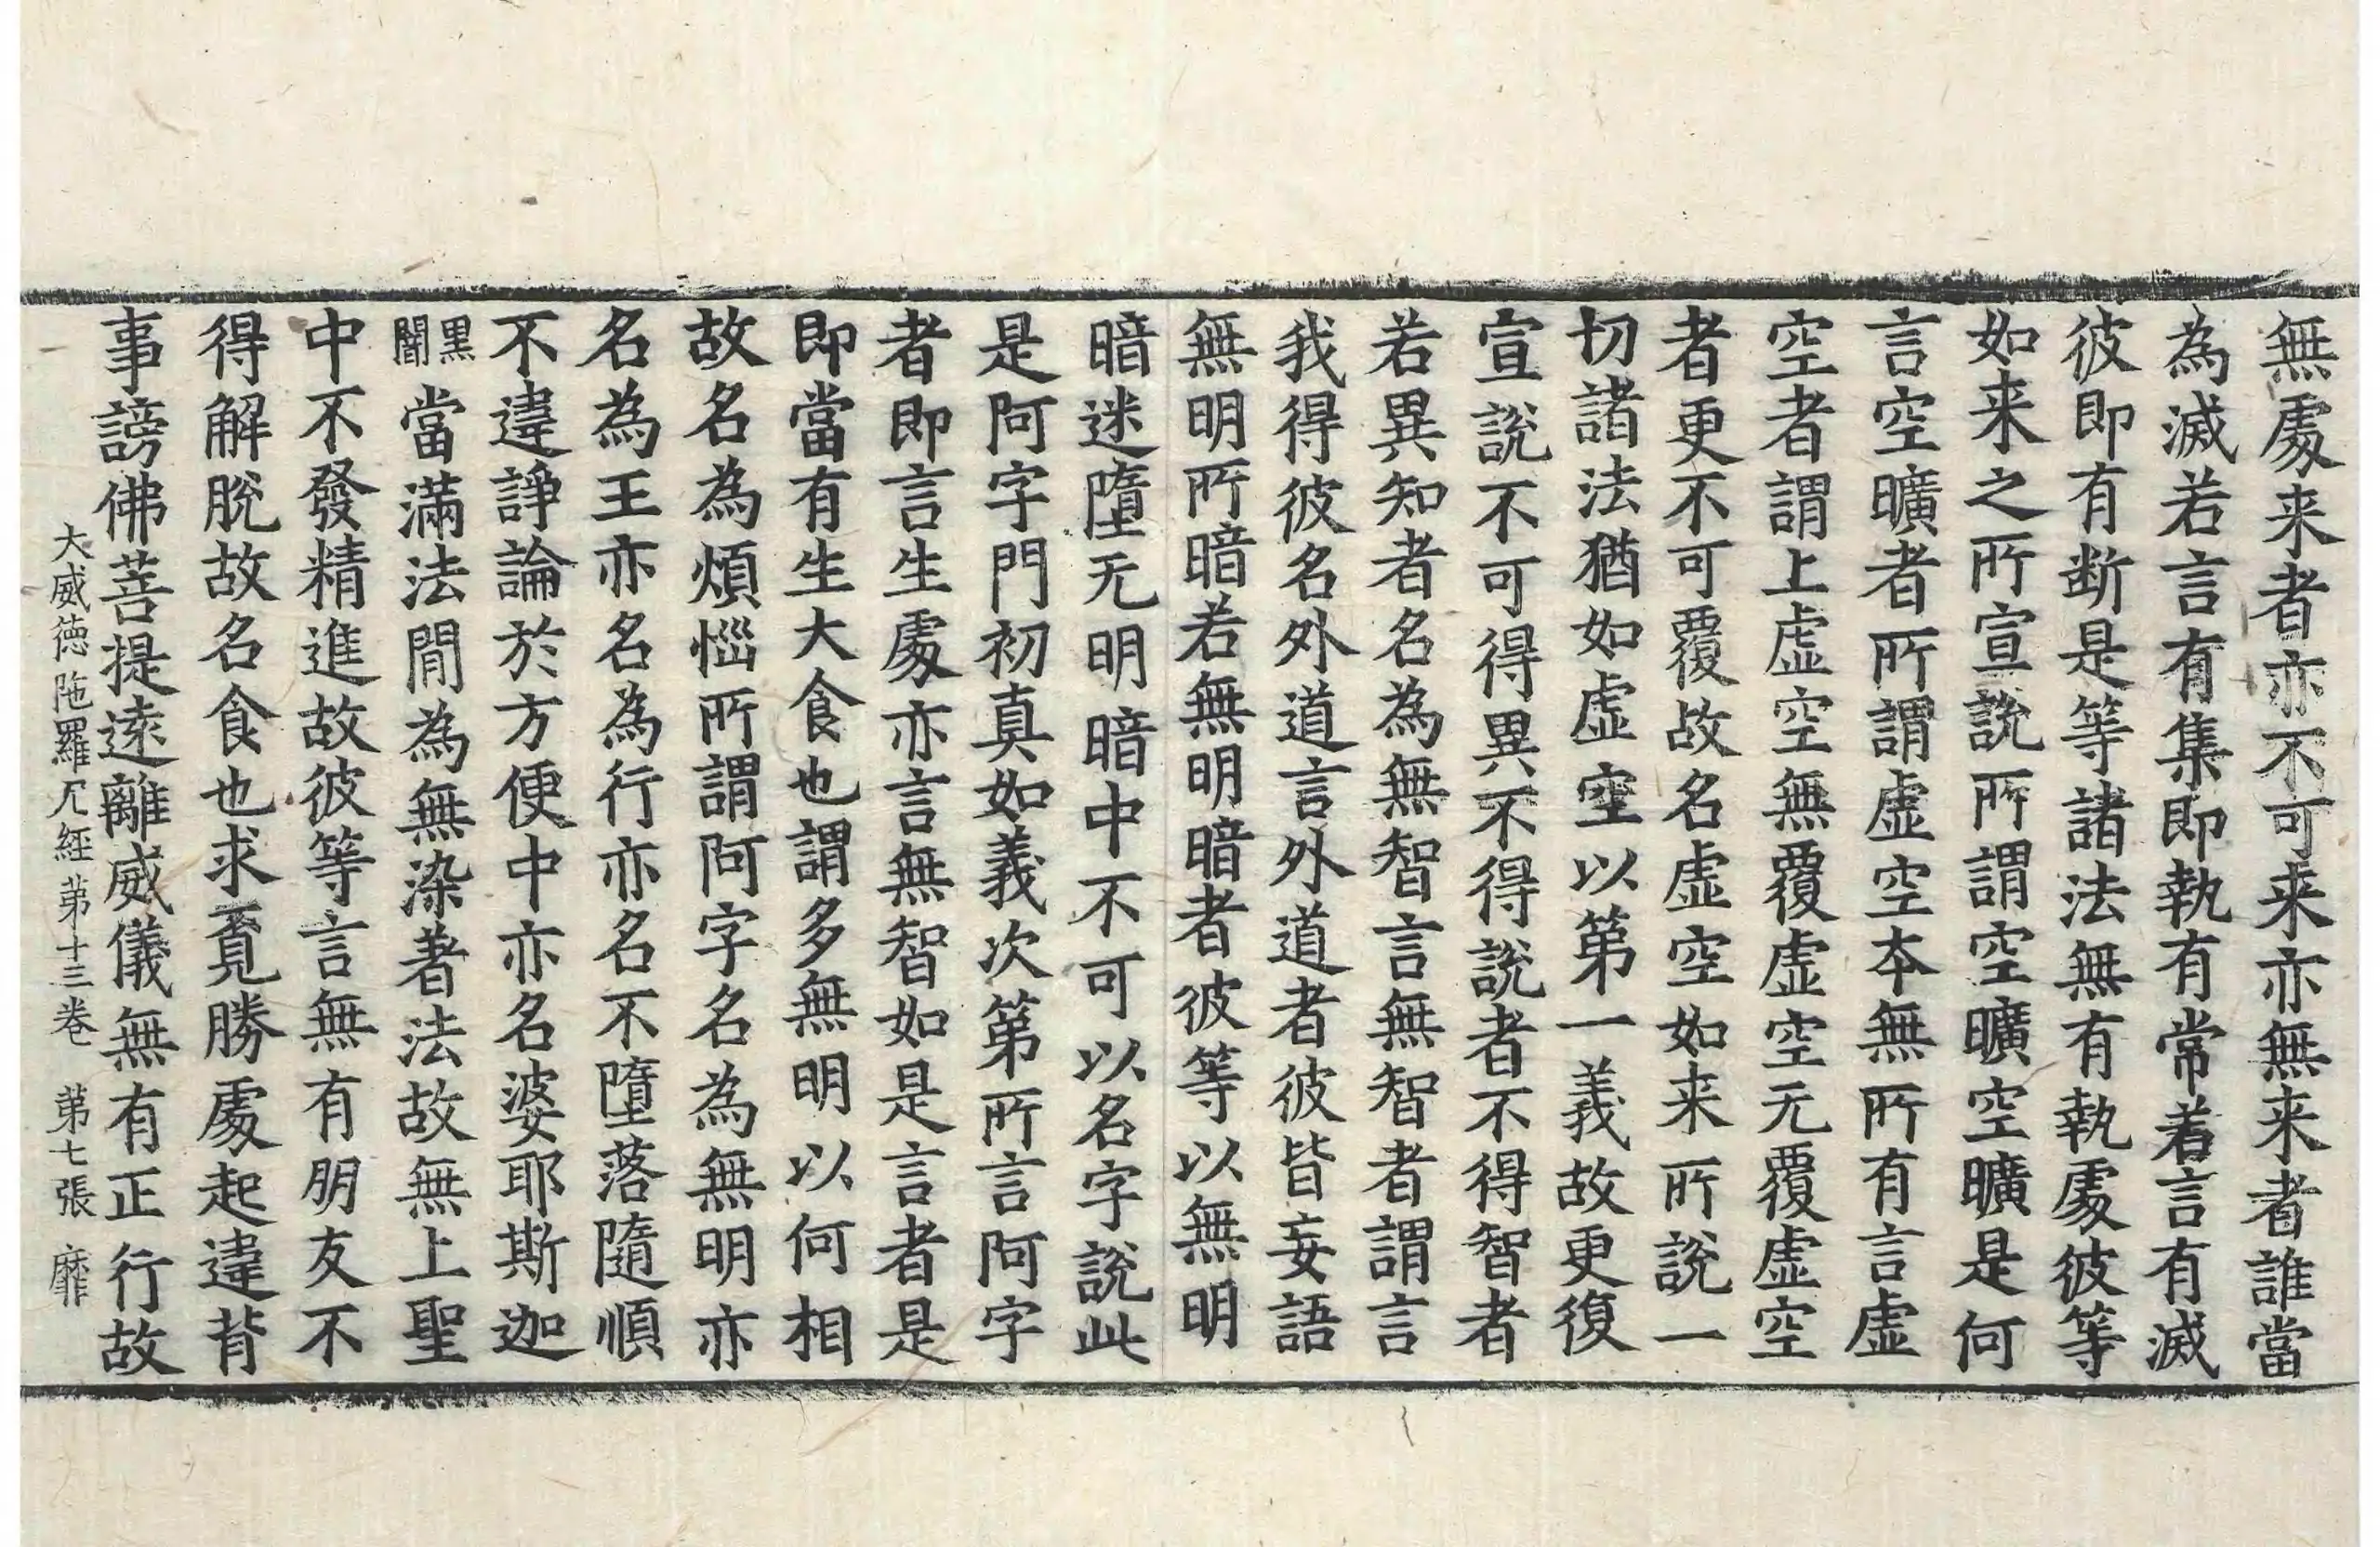 無處来者亦不可来亦無来者誰當
為滅若言有集即執有常若言有滅
彼即有断是等諸法無有執處彼等
如来之所宣說所謂空曠空曠是何
言空曠者所謂虛空本無所有言虛
空者謂上虛空無覆虛空无覆虛空
者更不可覆故名虛空如来所說一
切諸法猶如虛空以第一義故更復
宣說不可得異不得說者不得智者
若異知者名為無智言無智者謂言
我得彼名外道言外道者彼皆妄語
無明所暗若無明暗者彼等以無明
暗迷墮无明暗中不可以名字說此
是阿字門初真如義次第所言阿字
者即言生處亦言無智如是言者是
即當有生大食也謂多無明以何相
故名為煩惱所謂阿字名為無明亦
名為王亦名為行亦名不墮落隨順
不違諍論於方便中亦名婆耶斯迦
黑闇當滿法閒為無染著法故無上聖
中不發精進故彼等言無有朋友不
得解脫故名食也求覔勝處起違背
事謗佛菩提遠離威儀無有正行故
大威徳陁羅尼經第十三卷 第七張 靡